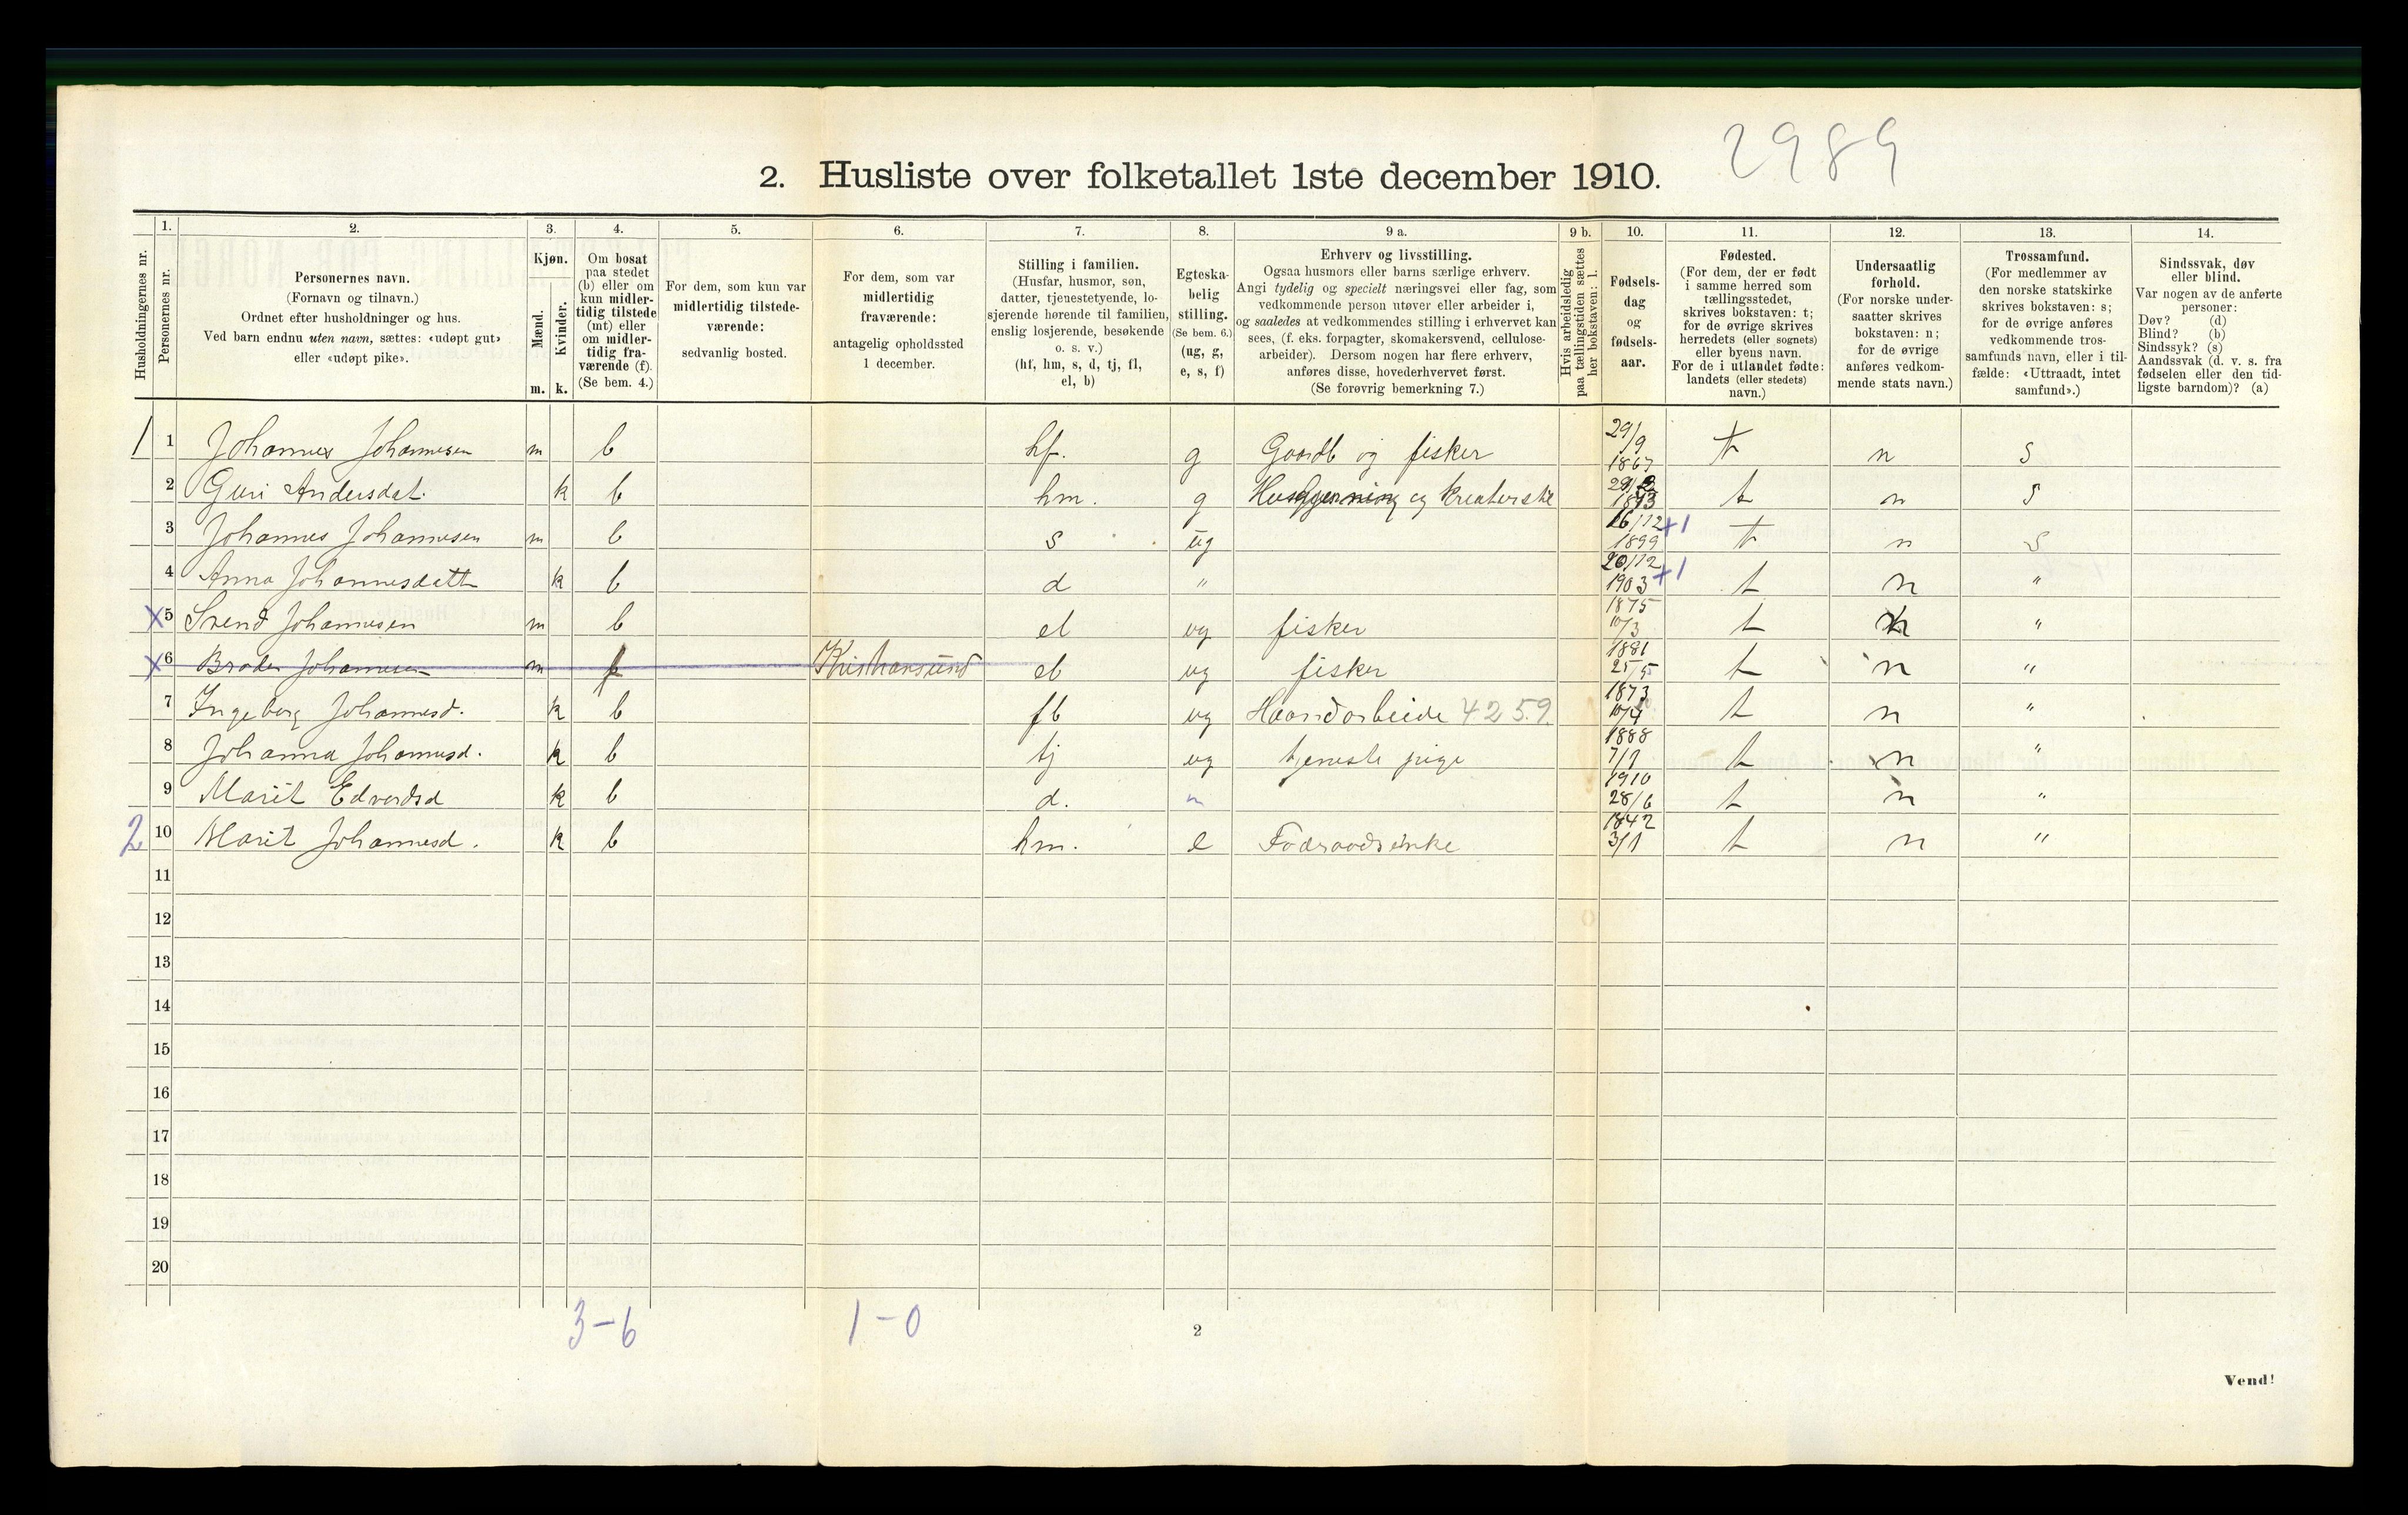 2989
2. Husliste over folketallet 1ste december 1910.
Husholdningernes nr.
1.
Personernes nr.
2.
Personernes navn.
(Fornavn og tilnavn.)
Ordnet efter husholdninger og hus.
Ved barn endnu uten navn, sættes: «udøpt gut»
eller «udøpt pike».
3.
Kjøn.
Mænd.
Kvinder.
m. k.
4.
Om bosat
paa stedet
(b) eller om
kun midler-
tidig tilstede
(mt) eller
om midler-
tidig fra-
værende (f).
(Se bem. 4.)
5.
For dem, som kun var
midlertidig tilstede-
værende:
sedvanlig bosted.
6.
For dem, som var
midlertidig
fraværende:
antagelig opholdssted
1 december.
7.
Stilling i familien.
(Husfar, husmor, søn,
datter, tjenestetyende, lo-
sjerende hørende til familien,
enslig losjerende, besøkende
o. s. v.)
(hf, hm, s, d, tj, fl,
el, b)
8.
Egteska-
belig
stilling.
(Se bem. 6.)
(ug, g,
e, s, f)
9 a.
Erhverv og livsstilling.
Ogsaa husmors eller barns særlige erhverv.
Angi tydelig og specielt næringsvei eller fag, som
vedkommende person utøver eller arbeider i,
og saaledes at vedkommendes stilling i erhvervet kan
sees, (f. eks. forpagter, skomakersvend, cellulose-
arbeider). Dersom nogen har flere erhverv,
anføres disse, hovederhvervet først.
(Se forøvrig bemerkning 7.)
9 b.
Hvis arbeidsledig
paa tællingstiden sættes
her bokstaven: l.
10.
Fødsels-
dag
og
fødsels-
aar.
11.
Fødested.
(For dem, der er født
i samme herred som
tællingsstedet,
skrives bokstaven: t;
for de øvrige skrives
herredets (eller sognets)
eller byens navn.
For de i utlandet fødte:
landets (eller stedets)
navn.)
12.
Undersaatlig
forhold.
(For norske under-
saatter skrives
bokstaven: n;
for de øvrige
anføres vedkom-
mende stats navn.)
13.
Trossamfund.
(For medlemmer av
den norske statskirke
skrives bokstaven: s;
for de øvrige anføres
vedkommende tros-
samfunds navn, eller i til-
fælde: «Uttraadt, intet
samfund».)
14.
Sindssvak, døv
eller blind.
Var nogen av de anførte
personer:
Døv? (d)
Blind? (b)
Sindssyk? (s)
Aandssvak (d. v. s. fra
fødselen eller den tid-
ligste barndom)? (a)
1 1 Johannes Johannesen m b hf. g Gaardb og fisker 29/9 1867 t n s
2 Guri Andersdat. k b hm. g Husgjerning og Kreaturste 1873 t n s
3 Johannes Johannesen m b s ug 16/12 1899 +1 t n s
4 Anna Johannesdatt k b d " 20/12 1903 +1 t n "
x 5 Svend Johannesen m b el ug fisker 1875 10/3 t n "
x 6 Broder Johannesen m f Kristiansund el ug fisker 1881 25/5 t n "
7 Ingeborg Johannesd. k b fl ug Haandarbeide 4259 1873 10/4 t n "
8 Johanna Johannesd. k b tj ug tjeneste pige 1888 7/1 t n "
9 Marit Edvardsd k b d. " 1910 28/6 t n "
2 10 Marit Johannesd. k b hm. e Føderaadsenke 1842 3/1 t n "
11
12
13
14
15
16
17
18
19
20
3-6 1-0
2
Vend!